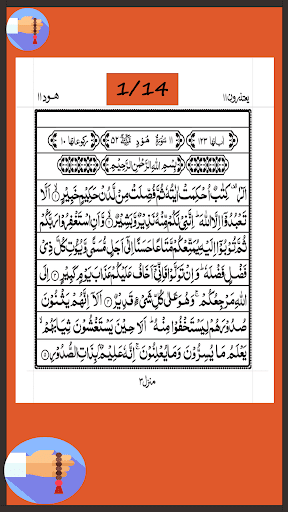 يعتذرون ١١
هود ١١
1/14
اٰیاتها ١٢٣ ١١ سُوْرَةُ هُوْدٍ مَّكِّيَّةٌ ٥٢ رکوعاتها ١٠
بِسْمِ اللّٰهِ الرَّحْمٰنِ الرَّحِيْمِ
الٓرٰ ۫ كِتٰبٌ اُحْكِمَتْ اٰيٰتُهٗ ثُمَّ فُصِّلَتْ مِنْ لَّدُنْ حَكِيْمٍ خَبِيْرٍ ۙ﴿١﴾ اَلَّا
تَعْبُدُوْۤا اِلَّا اللّٰهَ ؕ اِنَّنِیْ لَكُمْ مِّنْهُ نَذِيْرٌ وَّبَشِيْرٌ ۙ﴿٢﴾ وَّاَنِ اسْتَغْفِرُوْا رَبَّكُمْ
ثُمَّ تُوْبُوْۤا اِلَيْهِ يُمَتِّعْكُمْ مَّتَاعًا حَسَنًا اِلٰۤی اَجَلٍ مُّسَمًّی وَّيُؤْتِ كُلَّ ذِیْ
فَضْلٍ فَضْلَهٗ ؕ وَاِنْ تَوَلَّوْا فَاِنِّیْۤ اَخَافُ عَلَيْكُمْ عَذَابَ يَوْمٍ كَبِيْرٍ ﴿٣﴾ اِلَی
اللّٰهِ مَرْجِعُكُمْ ۚ وَهُوَ عَلٰی كُلِّ شَیْءٍ قَدِيْرٌ ﴿٤﴾ اَلَاۤ اِنَّهُمْ يَثْنُوْنَ
صُدُوْرَهُمْ لِيَسْتَخْفُوْا مِنْهُ ؕ اَلَا حِيْنَ يَسْتَغْشُوْنَ ثِيَابَهُمْ ۙ
يَعْلَمُ مَا يُسِرُّوْنَ وَمَا يُعْلِنُوْنَ ۚ اِنَّهٗ عَلِيْمٌۢ بِذَاتِ الصُّدُوْرِ ﴿٥﴾
منزل ٣